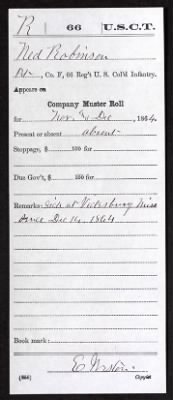 R 66 U.S.C.T.
Ned Robinson
Pvt., Co. F, 66 Reg't U. S. Col'd Infantry.
Appears on
Company Muster Roll
for Nov. & Dec, 1864.
Present or absent absent
Stoppage, $ 100 for
Due Gov't, $ 100 for
Remarks: Sick at Vicksburg Miss
since Dec 14, 1864
Book mark:
(858) Copyist.